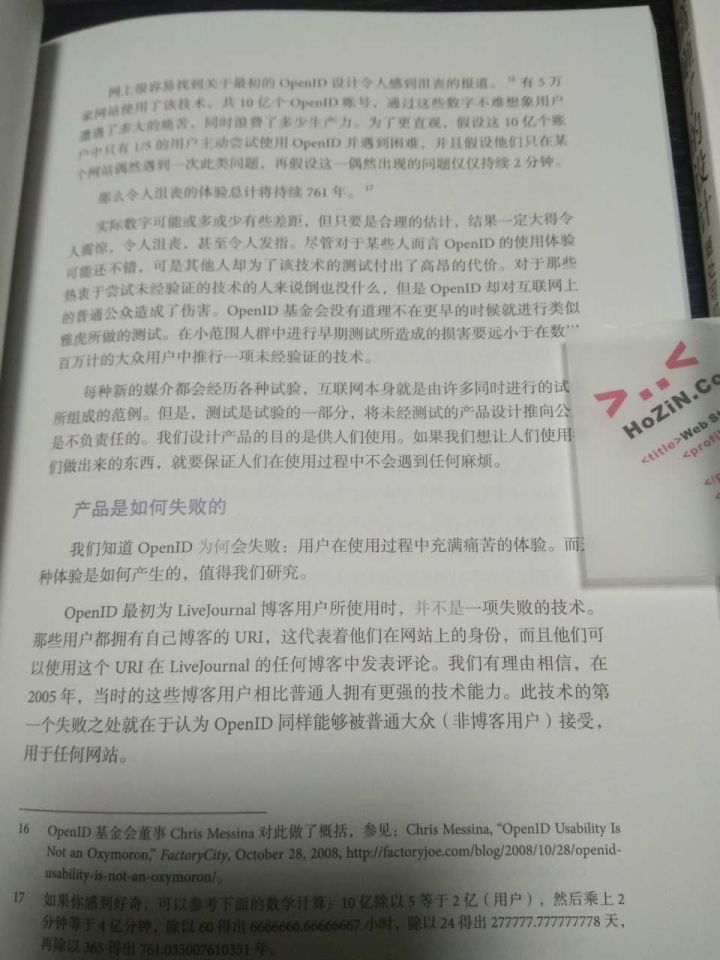 网上很容易找到关于最初的 OpenID 设计令人感到沮丧的报道。16 有 5 万
家网站使用了该技术、共 10 亿个 OpenID 账号，通过这些数字不难想象用户
遭遇了多大的痛苦，同时浪费了多少生产力。为了更直观，假设这 10 亿个账
户中只有 1/5 的用户主动尝试使用 OpenID 并遇到困难，并且假设他们只在某
个网站偶然遇到一次此类问题，再假设这一偶然出现的问题仅仅持续 2 分钟。
那么令人沮丧的体验总计将持续 761 年。17
实际数字可能或多或少有些差距，但只要是合理的估计，结果一定大得令
人震惊，令人沮丧，甚至令人发指。尽管对于某些人而言 OpenID 的使用体验
可能还不错，可是其他人却为了该技术的测试付出了高昂的代价。对于那些
热衷于尝试未经验证的技术的人来说倒也没什么，但是 OpenID 却对互联网上
的普通公众造成了伤害。OpenID 基金会没有道理不在更早的时候就进行类似
雅虎所做的测试。在小范围人群中进行早期测试所造成的损害要远小于在数
百万计的大众用户中推行一项未经验证的技术。
每种新的媒介都会经历各种试验，互联网本身就是由许多同时进行的试
所组成的范例。但是，测试是试验的一部分，将未经测试的产品设计推向公
是不负责任的。我们设计产品的目的是供人们使用。如果我们想让人们使用
们做出来的东西，就要保证人们在使用过程中不会遇到任何麻烦。
产品是如何失败的
我们知道 OpenID 为何会失败：用户在使用过程中充满痛苦的体验。而
种体验是如何产生的，值得我们研究。
OpenID 最初为 LiveJournal 博客用户所使用时，并不是一项失败的技术。
那些用户都拥有自己博客的 URI，这代表着他们在网站上的身份，而且他们可
以使用这个 URI 在 LiveJournal 的任何博客中发表评论。我们有理由相信，在
2005 年，当时的这些博客用户相比普通人拥有更强的技术能力。此技术的第
一个失败之处就在于认为 OpenID 同样能够被普通大众（非博客用户）接受，
用于任何网站。
16 OpenID 基金会董事 Chris Messina 对此做了概括，参见：Chris Messina, “OpenID Usability Is
Not an Oxymoron,” FactoryCity, October 28, 2008, http://factoryjoe.com/blog/2008/10/28/openid-
usability-is-not-an-oxymoron/。
17 如果你感到好奇，可以参考下面的数学计算：10 亿除以 5 等于 2 亿（用户），然后乘上 2
分钟等于 4 亿分钟，除以 60 得出 6666666.66666667 小时，除以 24 得出 277777.777777778 天，
再除以 365 得出 761.035007610351 年。
>..<
HoZiN.Co
<title>Web S
<profi
</p
的设计